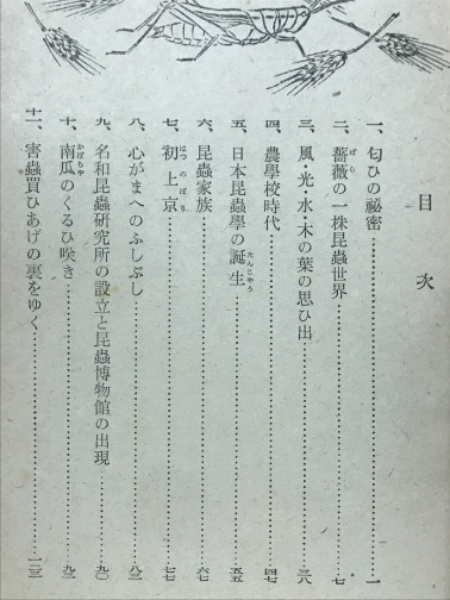 目次
一、匂ひの祕密…………一
二、薔薇の一株昆蟲世界…………七
三、風・光・水・木の葉の思ひ出…………三八
四、農學校時代…………四七
五、日本昆蟲學の誕生…………五五
六、昆蟲家族…………六七
七、初上京…………七七
八、心がまへのふしぶし…………八二
九、名和昆蟲硏究所の設立と昆蟲博物館の出現…………九〇
十、南瓜のくるひ咲き…………九二
十一、害蟲買ひあげの裏をゆく…………一三三